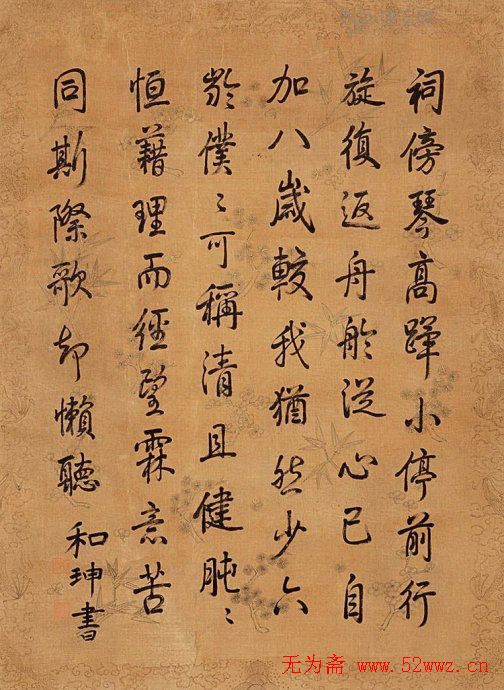 祠傍琴高蹕小停前行
旋復返舟舲從心已自
加八歲較我猶然少六
齡僕〻可稱清且健肫〻
恒藉理而經望霖意苦
同斯際歌却懶聽
和珅書
无为斋 www.52wwz.cn